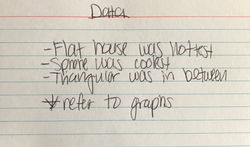 Data
- Flat house was hottest
- Sphere was coolest
- Triangular was in between
* refer to graphs